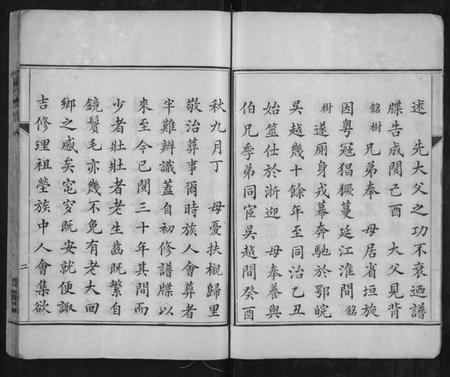 述　先大父之功不衰迺譜
牒告成閱己酉　大父見背
銘樹兄弟奉　母居省垣旋
因粵冠猖獗蔓延江淮間銘
樹遂廁身戎幕奔馳於鄂皖
吳越幾十餘年至同治乙丑
始筮仕於浙迎　母奉養與
伯兄季弟同宦吳越間癸酉
秋九月丁　母憂扶櫬歸里
敬治葬事爾時族人會葬者
半難辨識蓋自初修譜牒以
來至今已閱三十年其間而
少者壯壯者老生齒既繁自
鏡鬢毛亦幾不免有老大回
鄉之感矣窀穸既安就便諏
吉修理祖塋族中人會集欲
二